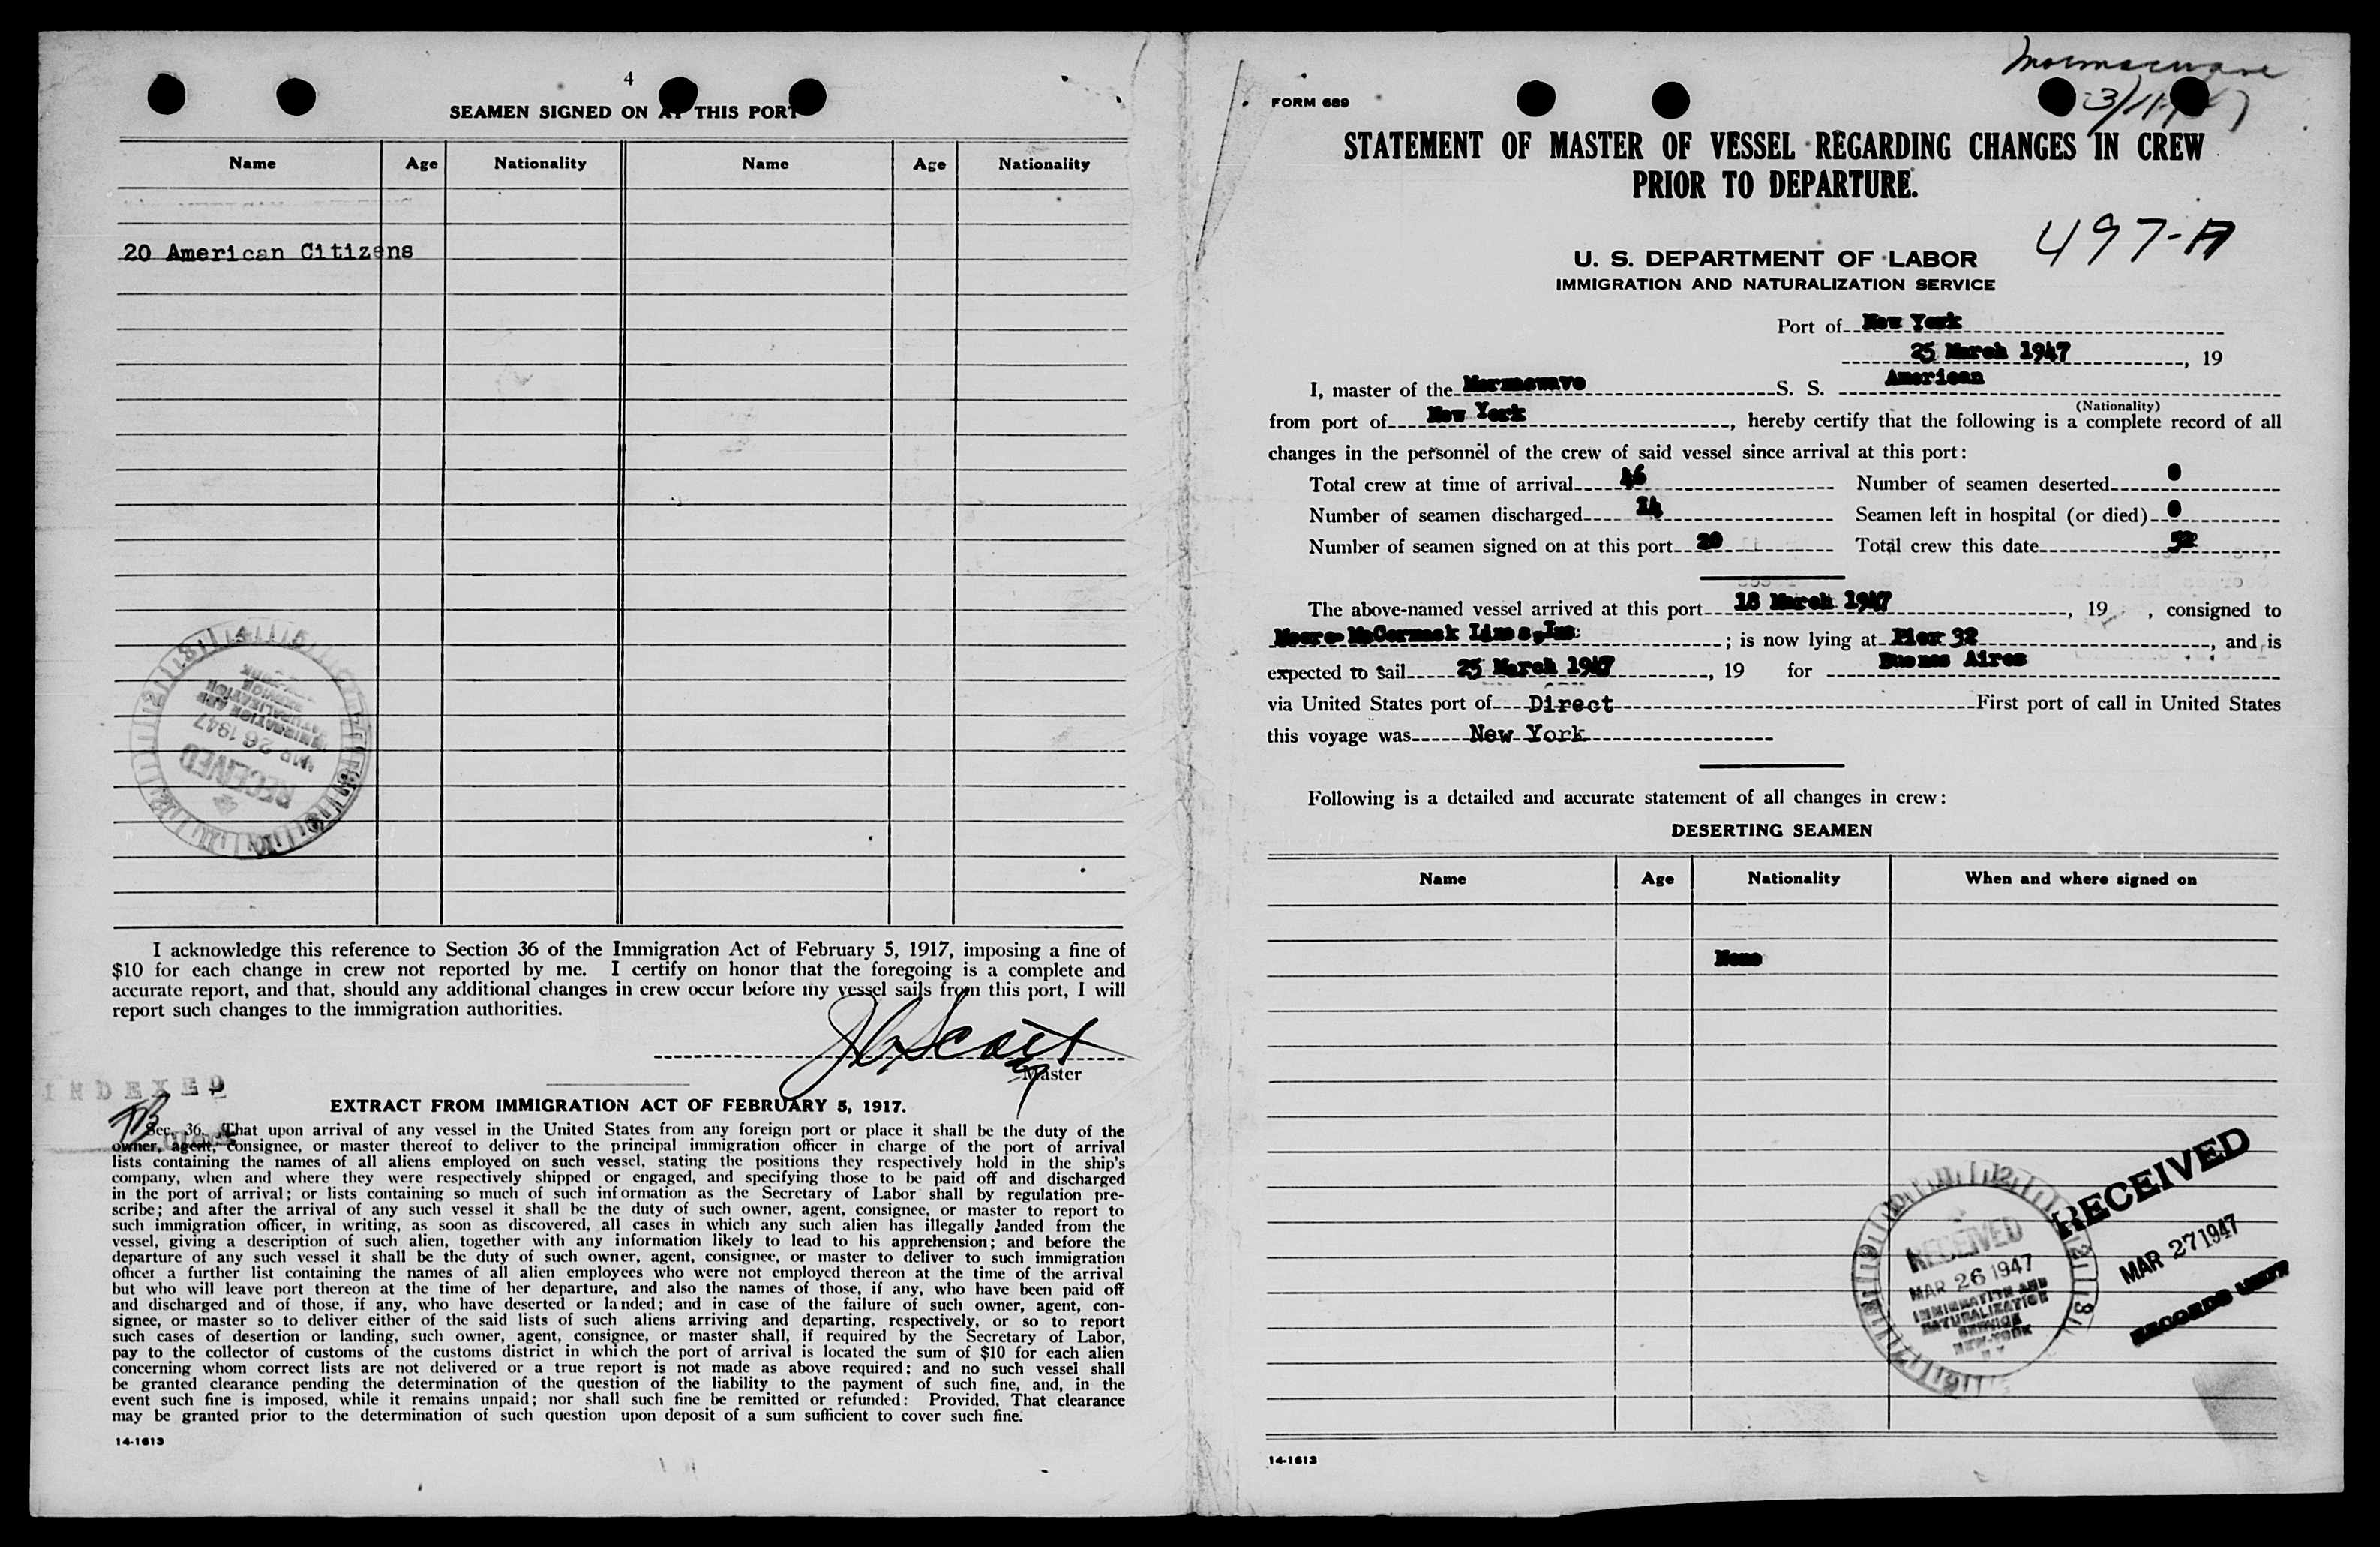 4
SEAMEN SIGNED ON AT THIS PORT
Name Age Nationality Name Age Nationality
20 American Citizens
RECEIVED
MAR 26 1947
IMMIGRATION AND
NATURALIZATION
SERVICE
I acknowledge this reference to Section 36 of the Immigration Act of February 5, 1917, imposing a fine of
$10 for each change in crew not reported by me. I certify on honor that the foregoing is a complete and
accurate report, and that, should any additional changes in crew occur before my vessel sails from this port, I will
report such changes to the immigration authorities.
Master
INDEXED
EXTRACT FROM IMMIGRATION ACT OF FEBRUARY 5, 1917.
Sec. 36. That upon arrival of any vessel in the United States from any foreign port or place it shall be the duty of the
owner, agent, consignee, or master thereof to deliver to the principal immigration officer in charge of the port of arrival
lists containing the names of all aliens employed on such vessel, stating the positions they respectively hold in the ship's
company, when and where they were respectively shipped or engaged, and specifying those to be paid off and discharged
in the port of arrival; or lists containing so much of such information as the Secretary of Labor shall by regulation pre-
scribe; and after the arrival of any such vessel it shall be the duty of such owner, agent, consignee, or master to report to
such immigration officer, in writing, as soon as discovered, all cases in which any such alien has illegally landed from the
vessel, giving a description of such alien, together with any information likely to lead to his apprehension; and before the
departure of any such vessel it shall be the duty of such owner, agent, consignee, or master to deliver to such immigration
officer a further list containing the names of all alien employees who were not employed thereon at the time of the arrival
but who will leave port thereon at the time of her departure, and also the names of those, if any, who have been paid off
and discharged and of those, if any, who have deserted or landed; and in case of the failure of such owner, agent, con-
signee, or master so to deliver either of the said lists of such aliens arriving and departing, respectively, or so to report
such cases of desertion or landing, such owner, agent, consignee, or master shall, if required by the Secretary of Labor,
pay to the collector of customs of the customs district in which the port of arrival is located the sum of $10 for each alien
concerning whom correct lists are not delivered or a true report is not made as above required; and no such vessel shall
be granted clearance pending the determination of the question of the liability to the payment of such fine, and, in the
event such fine is imposed, while it remains unpaid; nor shall such fine be remitted or refunded: Provided, That clearance
may be granted prior to the determination of such question upon deposit of a sum sufficient to cover such fine.
14-1613
Mormacwave
FORM 689
STATEMENT OF MASTER OF VESSEL REGARDING CHANGES IN CREW
PRIOR TO DEPARTURE.
497-A
U. S. DEPARTMENT OF LABOR
IMMIGRATION AND NATURALIZATION SERVICE
Port of New York
25 March 1947, 19
I, master of the Mormacwave S. S. American
(Nationality)
from port of New York, hereby certify that the following is a complete record of all
changes in the personnel of the crew of said vessel since arrival at this port:
Total crew at time of arrival 46 Number of seamen deserted 0
Number of seamen discharged 14 Seamen left in hospital (or died) 0
Number of seamen signed on at this port 20 Total crew this date 52
The above-named vessel arrived at this port 18 March 1947, 19 , consigned to
Moore-McCormack Lines,Inc; is now lying at Pier 32, and is
expected to sail 25 March 1947, 19 for Buenos Aires
via United States port of Direct First port of call in United States
this voyage was New York
Following is a detailed and accurate statement of all changes in crew:
DESERTING SEAMEN
Name Age Nationality When and where signed on
None
RECEIVED
MAR 26 1947
IMMIGRATION AND
NATURALIZATION
SERVICE
NEW YORK
N Y
RECEIVED
MAR 27 1947
RECORDS UNIT
14-1613